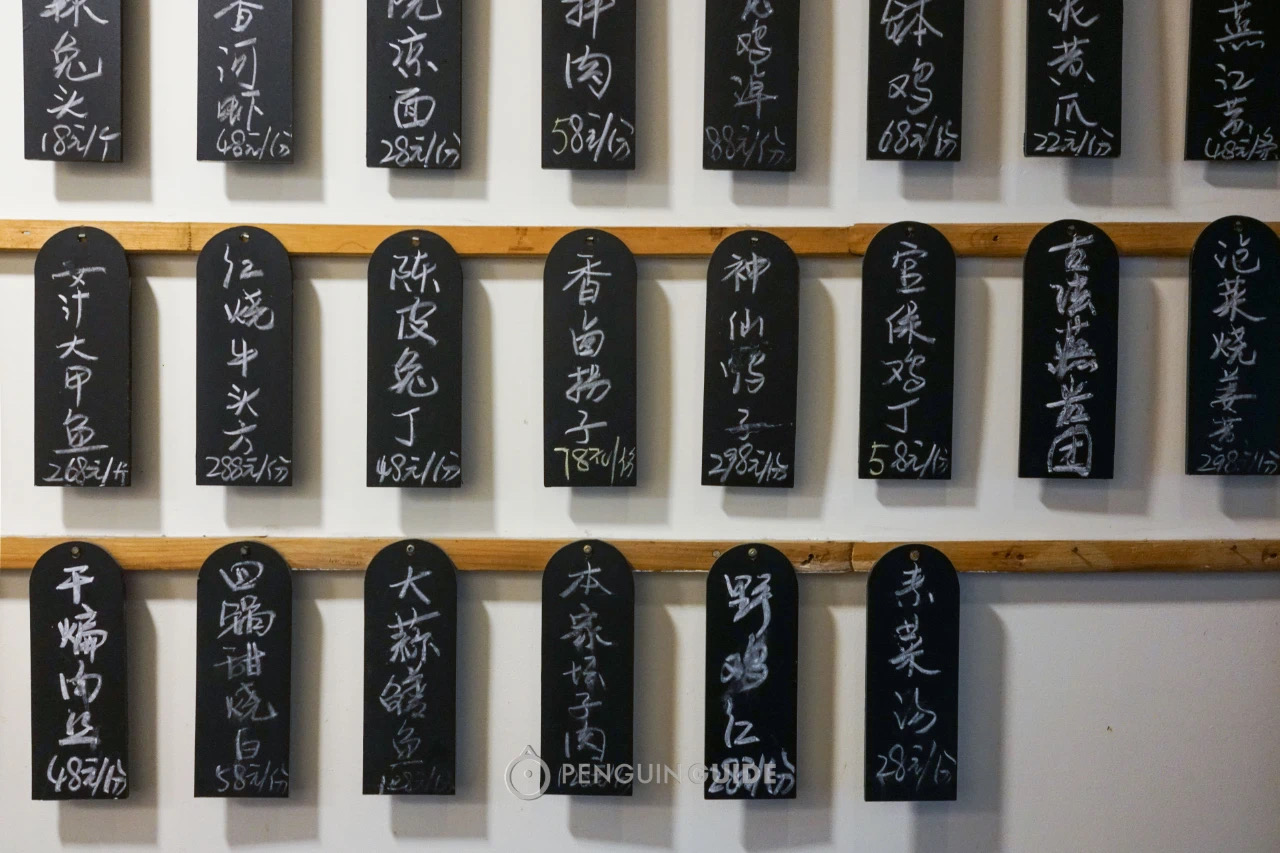 兔头
18元/个
香河虾
48元/份
院凉面
28元/份
拌肉
58元/份
鸡淖
88元/份
钵鸡
68元/份
泥黄瓜
22元/份
燕江
48元/条
汁大甲鱼
268元/斤
红烧牛头方
288元/份
陈皮兔丁
48元/份
香卤揚子
78元/份
神仙鸭子
298元/份
宫保鸡丁
58元/份
古法蒸
团
泡菜烧姜
298元/份
干煸肉丝
48元/份
回锅甜烧白
58元/份
大蒜鳝鱼
128元/份
本家坛子肉
野鸡红
28元/份
素菜汤
28元/份
PENGUIN GUIDE